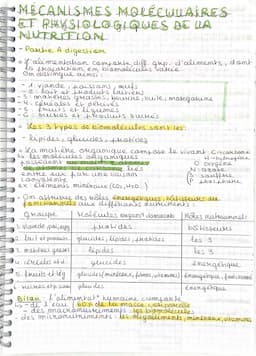 MÉCANISMES MOLÉCULAIRES
ET PHYSIOLOGIQUES DE LA
NUTRITION
- Partie A digestion
L'alimentation comprend diff. grp. d'aliments, dont
la proportion en biomolécules varie.
On distingue ainsi :
- 1. viande, poissons, œufs
- 2. lait et produits laitiers
- 3. matières grasses, beurre, huile, margarine
- 4. céréales et dérivés
- 5. fruits et légumes
- 6. sucres et produits sucrés
Les 3 types de biomolécules sont les :
lipides, glucides, protides
La matière organique compose le vivant C : carbone
les molécules organiques H : hydrogène
O : oxygène
N : azote
entre eux par une liaison S : soufre
covalente P : phosphore
ex : éléments minéraux (CO2, H2O..)
On attribue des rôles énergétiques, bâtisseurs ou
fonctionnels aux différents aliments :
Groupe Molécules organiq dominante Rôles nutritionnels
1. viande, poiss, œuf protides bâtisseurs
2. lait et produits glucides, lipides, protides les 3
3. matières grasses lipides les 3
4. céréales et d. glucides énergétique
5. fruits et lég glucides (minéraux, fibres, vitamines) énergétique, fonctionnel
6. sucres et produits glucides énergétique
Bilan : L'alimentat° humaine comporte
- de l'eau : 60% de la masse corporelle
- des macronutriments : les biomolécules
- des micronutriments : les oligoéléments, minéraux, vitamines